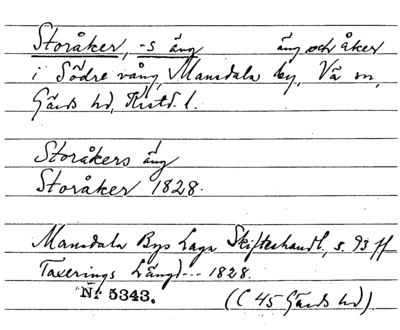 Storåker, -s äng äng och åker
i Södre vång, Mansdala by, Vä sn,
Gärds hd, Kristd. l.
Storåkers äng
Storåker 1828.
Mansdala Bys Laga Skifteshandl., s. 93 ff
Taxerings Längd --- 1828.
Nr 5343. (C 45 Gärds hd).